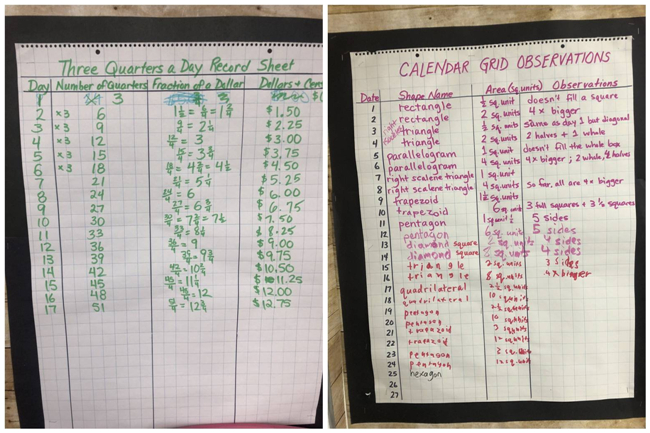 Three Quarters a Day Record Sheet
Day Number of Quarters Fraction of a Dollar Dollars + Cen
1 3
2 x3 6 1 2/4 = 6/4 = 1 2/4 $1.50
3 x3 9 9/4 = 2 1/4 $2.25
4 x3 12 12/4 = 3 $3.00
5 x3 15 15/4 = 3 3/4 $3.75
6 x3 18 18/4 = 4 2/4 = 4 1/2 $4.50
7 21 21/4 = 5 1/4 $5.25
8 24 24/4 = 6 $6.00
9 27 27/4 = 6 3/4 $6.75
10 30 30/4 = 7 2/4 = 7 1/2 $7.50
11 33 33/4 = 8 1/4 $8.25
12 36 36/4 = 9 $9.00
13 39 39/4 = 9 3/4 $9.75
14 42 42/4 = 10 2/4 $10.50
15 45 45/4 = 11 1/4 $11.25
16 48 48/4 = 12 $12.00
17 51 51/4 = 12 3/4 $12.75
CALENDAR GRID OBSERVATIONS
Date Shape Name Area (sq. units) Observations
1 rectangle 1/2 sq. unit doesn't fill a square
2 rectangle 2 sq. units 4 x bigger
3 triangle 1/2 sq. unit same as day 1 but diagonal
4 triangle 2 sq. units 2 halves + 1 whole
5 parallelogram 1 sq. unit doesn't fill the whole box
6 parallelogram 4 sq. units 4x bigger; 2 whole, 4 halves
7 right scalene triangle 1 sq. unit
8 right scalene triangle 4 sq. units So far, all are 4x bigger
9 trapezoid 1 1/2 sq. units
10 trapezoid 6 sq. unit 3 full squares +
11 pentagon 5 sides
12 pentagon 6 sq. units 5 sides
13 diamond square 2 sq. units 4 sides
14 diamond square sq. units 4 sides
15 triangle 2 sq. units 3 sides
16 triangle 8 sq. units 4x bigger
17 quadrilateral 2 1/2 sq. units
18 quadrilateral 10 sq. units
19
20 pentagon 10 sq. units
21 trapazoid 3 sq. units
22 trapazoid 12 sq. units
23 pentagon
24 pentagon
25 hexagon
26
27